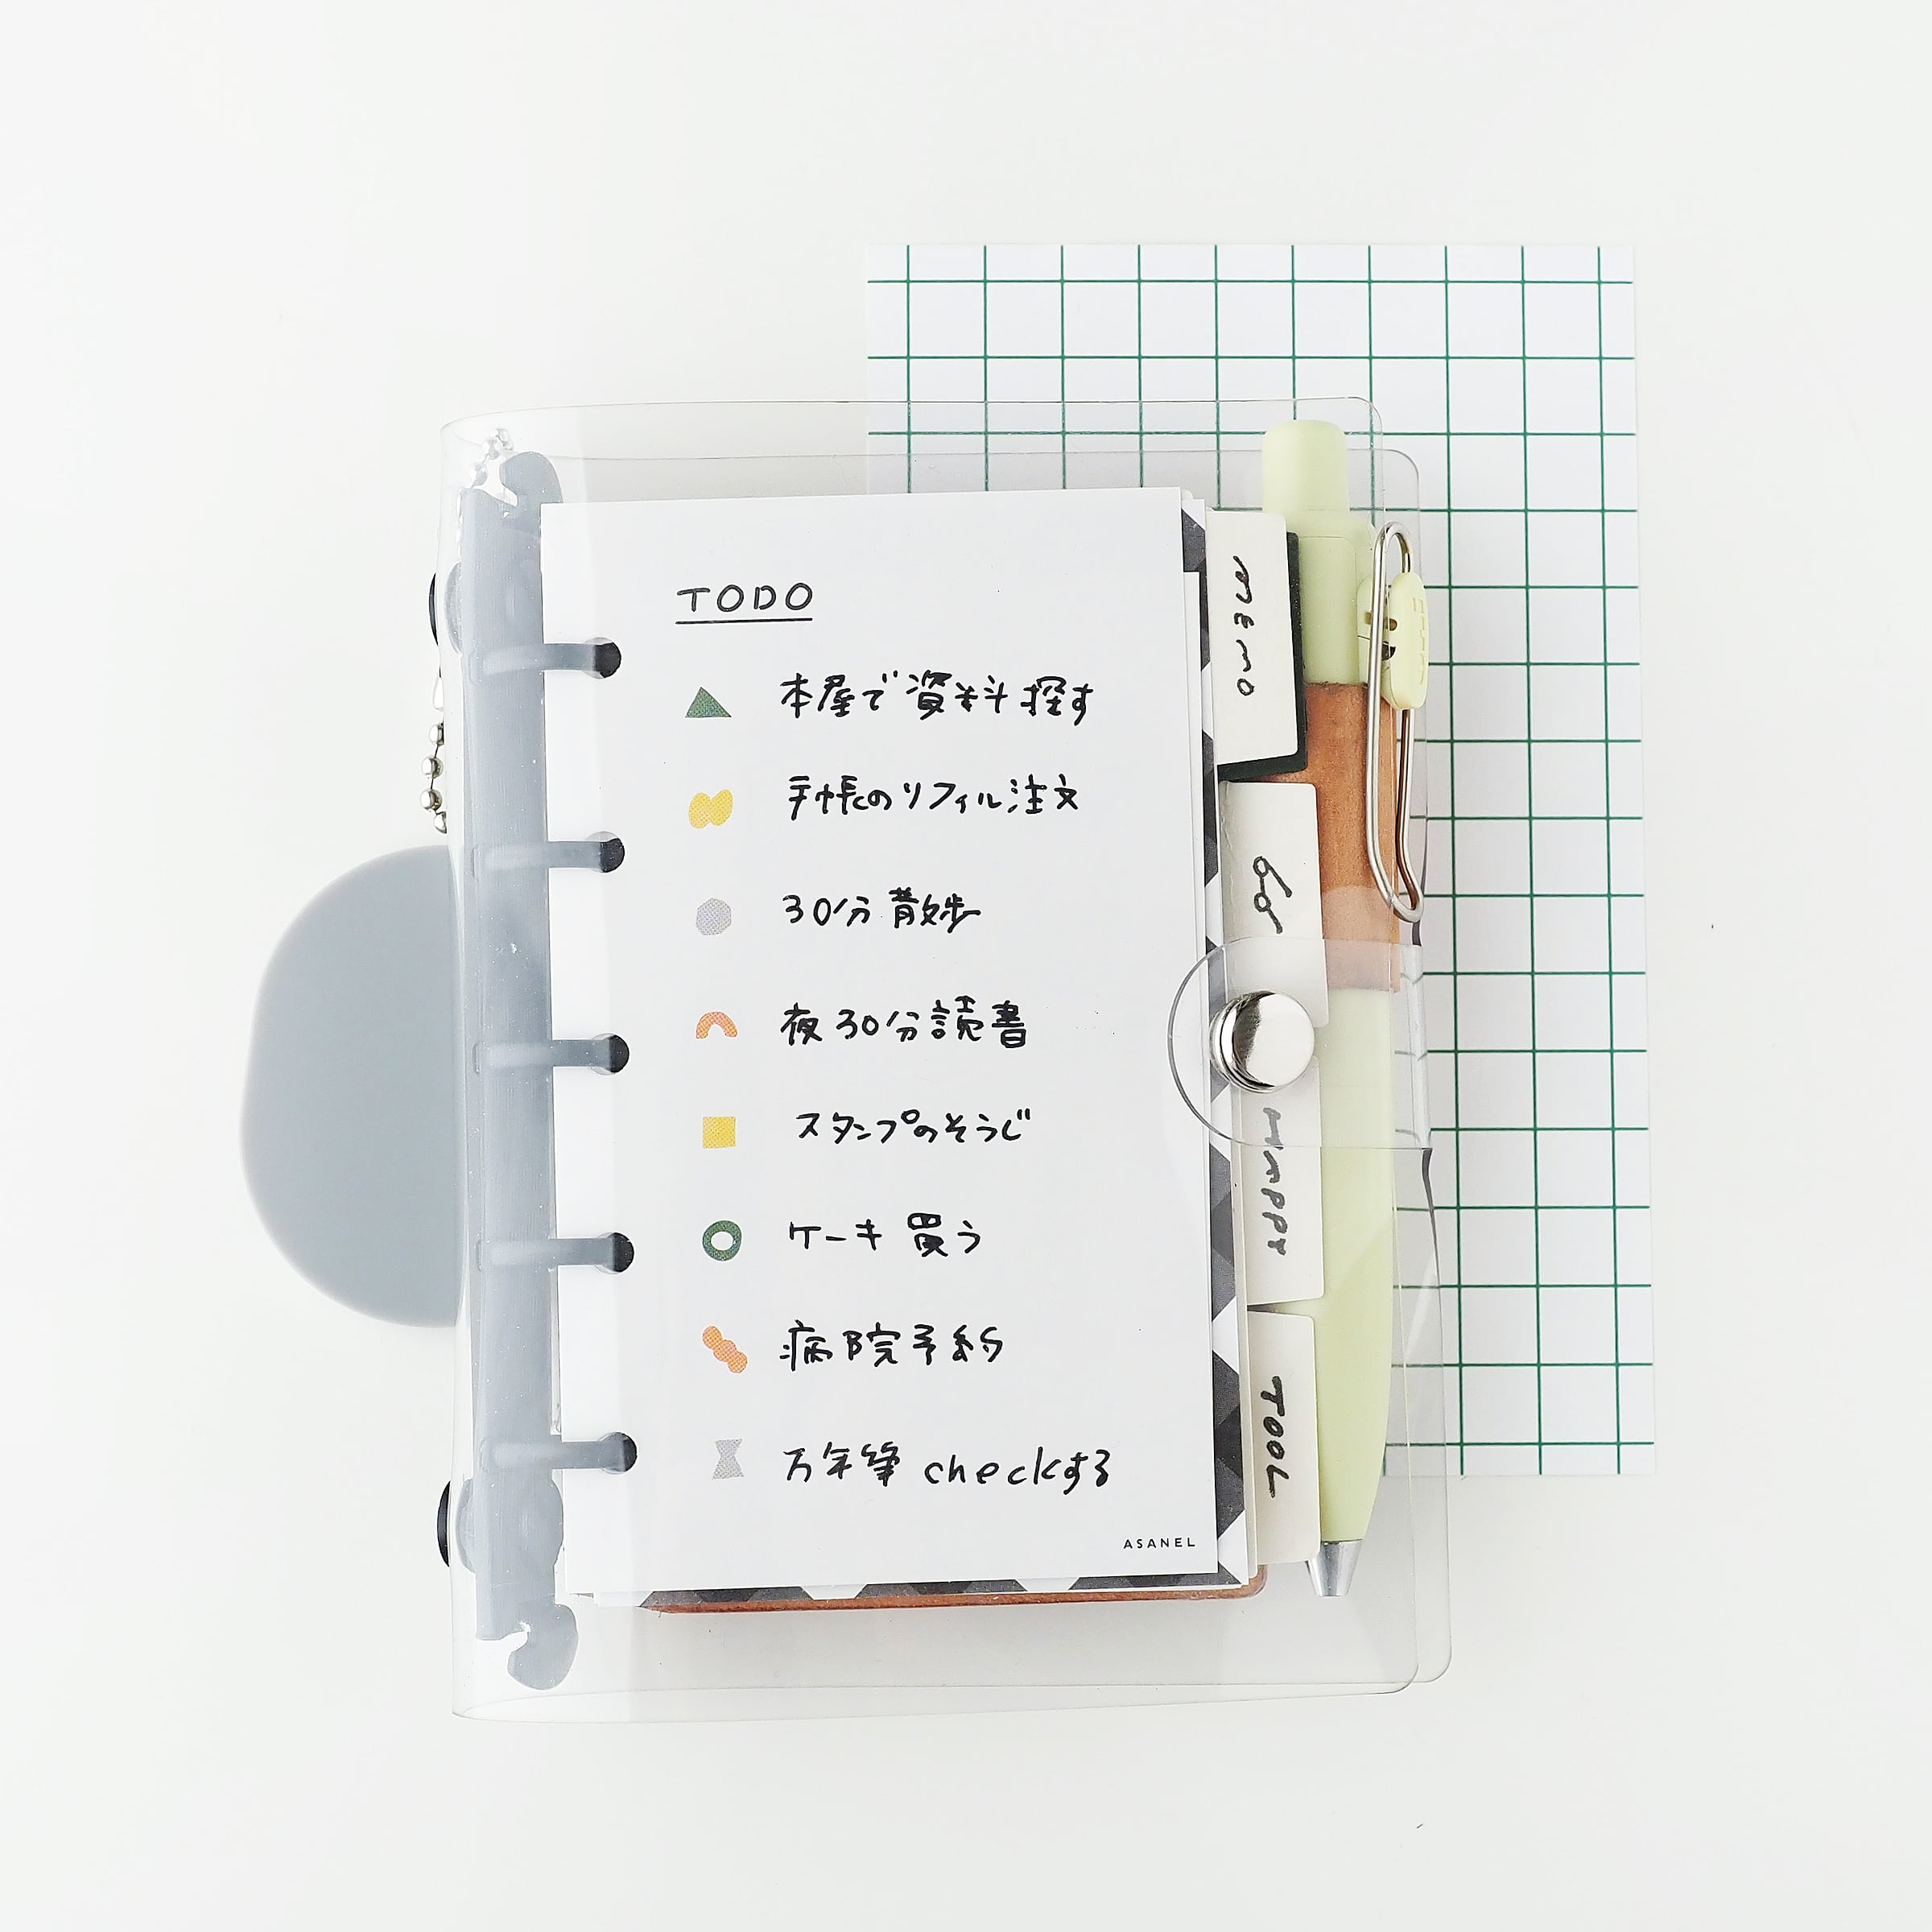 TODO
本屋で資料探す
手帳のリフィル注文
30分 散歩
夜30分読書
スタンプのそうじ
ケーキ 買う
病院予約
万年筆 checkする
ASANEL
MEMO
TOOL